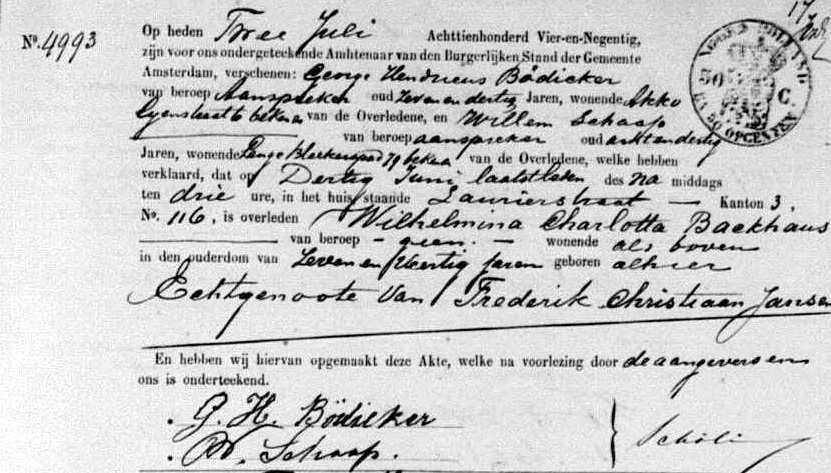 Nº. 4993
Op heden Twee Juli Achttienhonderd Vier-en-Negentig,
zijn voor ons ondergeteekende Ambtenaar van den Burgerlijken Stand der Gemeente
Amsterdam, verschenen: George Hendricus Bödicker
van beroep Aanspreker oud Zeven en dertig Jaren, wonende
bekende van de Overledene, en Willem Schaap
van beroep aanspreker oud acht en dertig
Jaren, wonende Lange Bleekerspad 79 bekende van de Overledene, welke hebben
verklaard, dat op Dertig Juni laatstleden des na middags
ten drie ure, in het huis staande Laurierstraat — Kanton 3,
No. 116, is overleden Wilhelmina Charlotta Backhaus
van beroep - geen. - wonende als boven
in den ouderdom van Zeven en Veertig jaren geboren alhier
Echtgenoote van Frederik Christiaan Jansen
En hebben wij hiervan opgemaakt deze Akte, welke na voorlezing door de aangevers en
ons is onderteekend.
G. H. Bödicker
W. Schaap.
NOORD HOLLAND
50 C.
EN 30 OPCENTEN